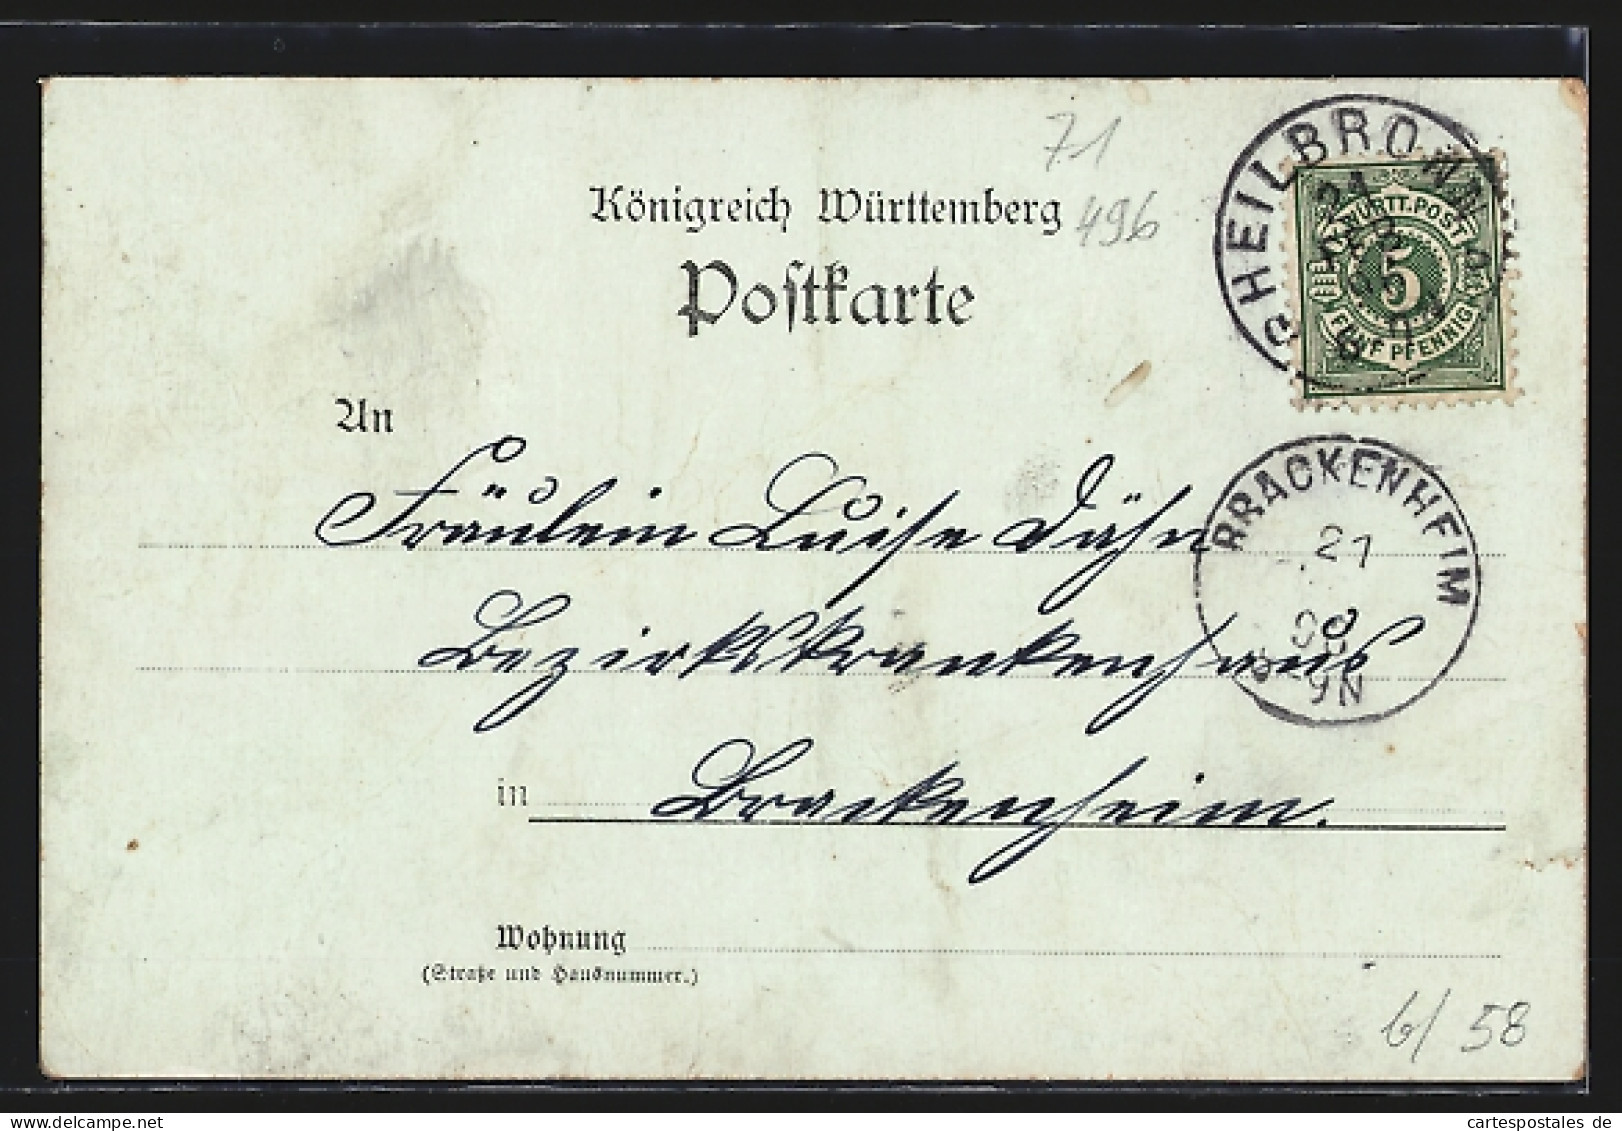 71
Königreich Württemberg 496
Postkarte
HEILBRONN
21
WÜRTT. POST
5
FÜNF PFENNIG
An
Fräulein Luise Dähn
BRACKENHEIM
21
Bezirkskrankenhaus
9N
in Brackenheim.
Wohnung
(Straße und Hausnummer.)
6/58
cartespostales de